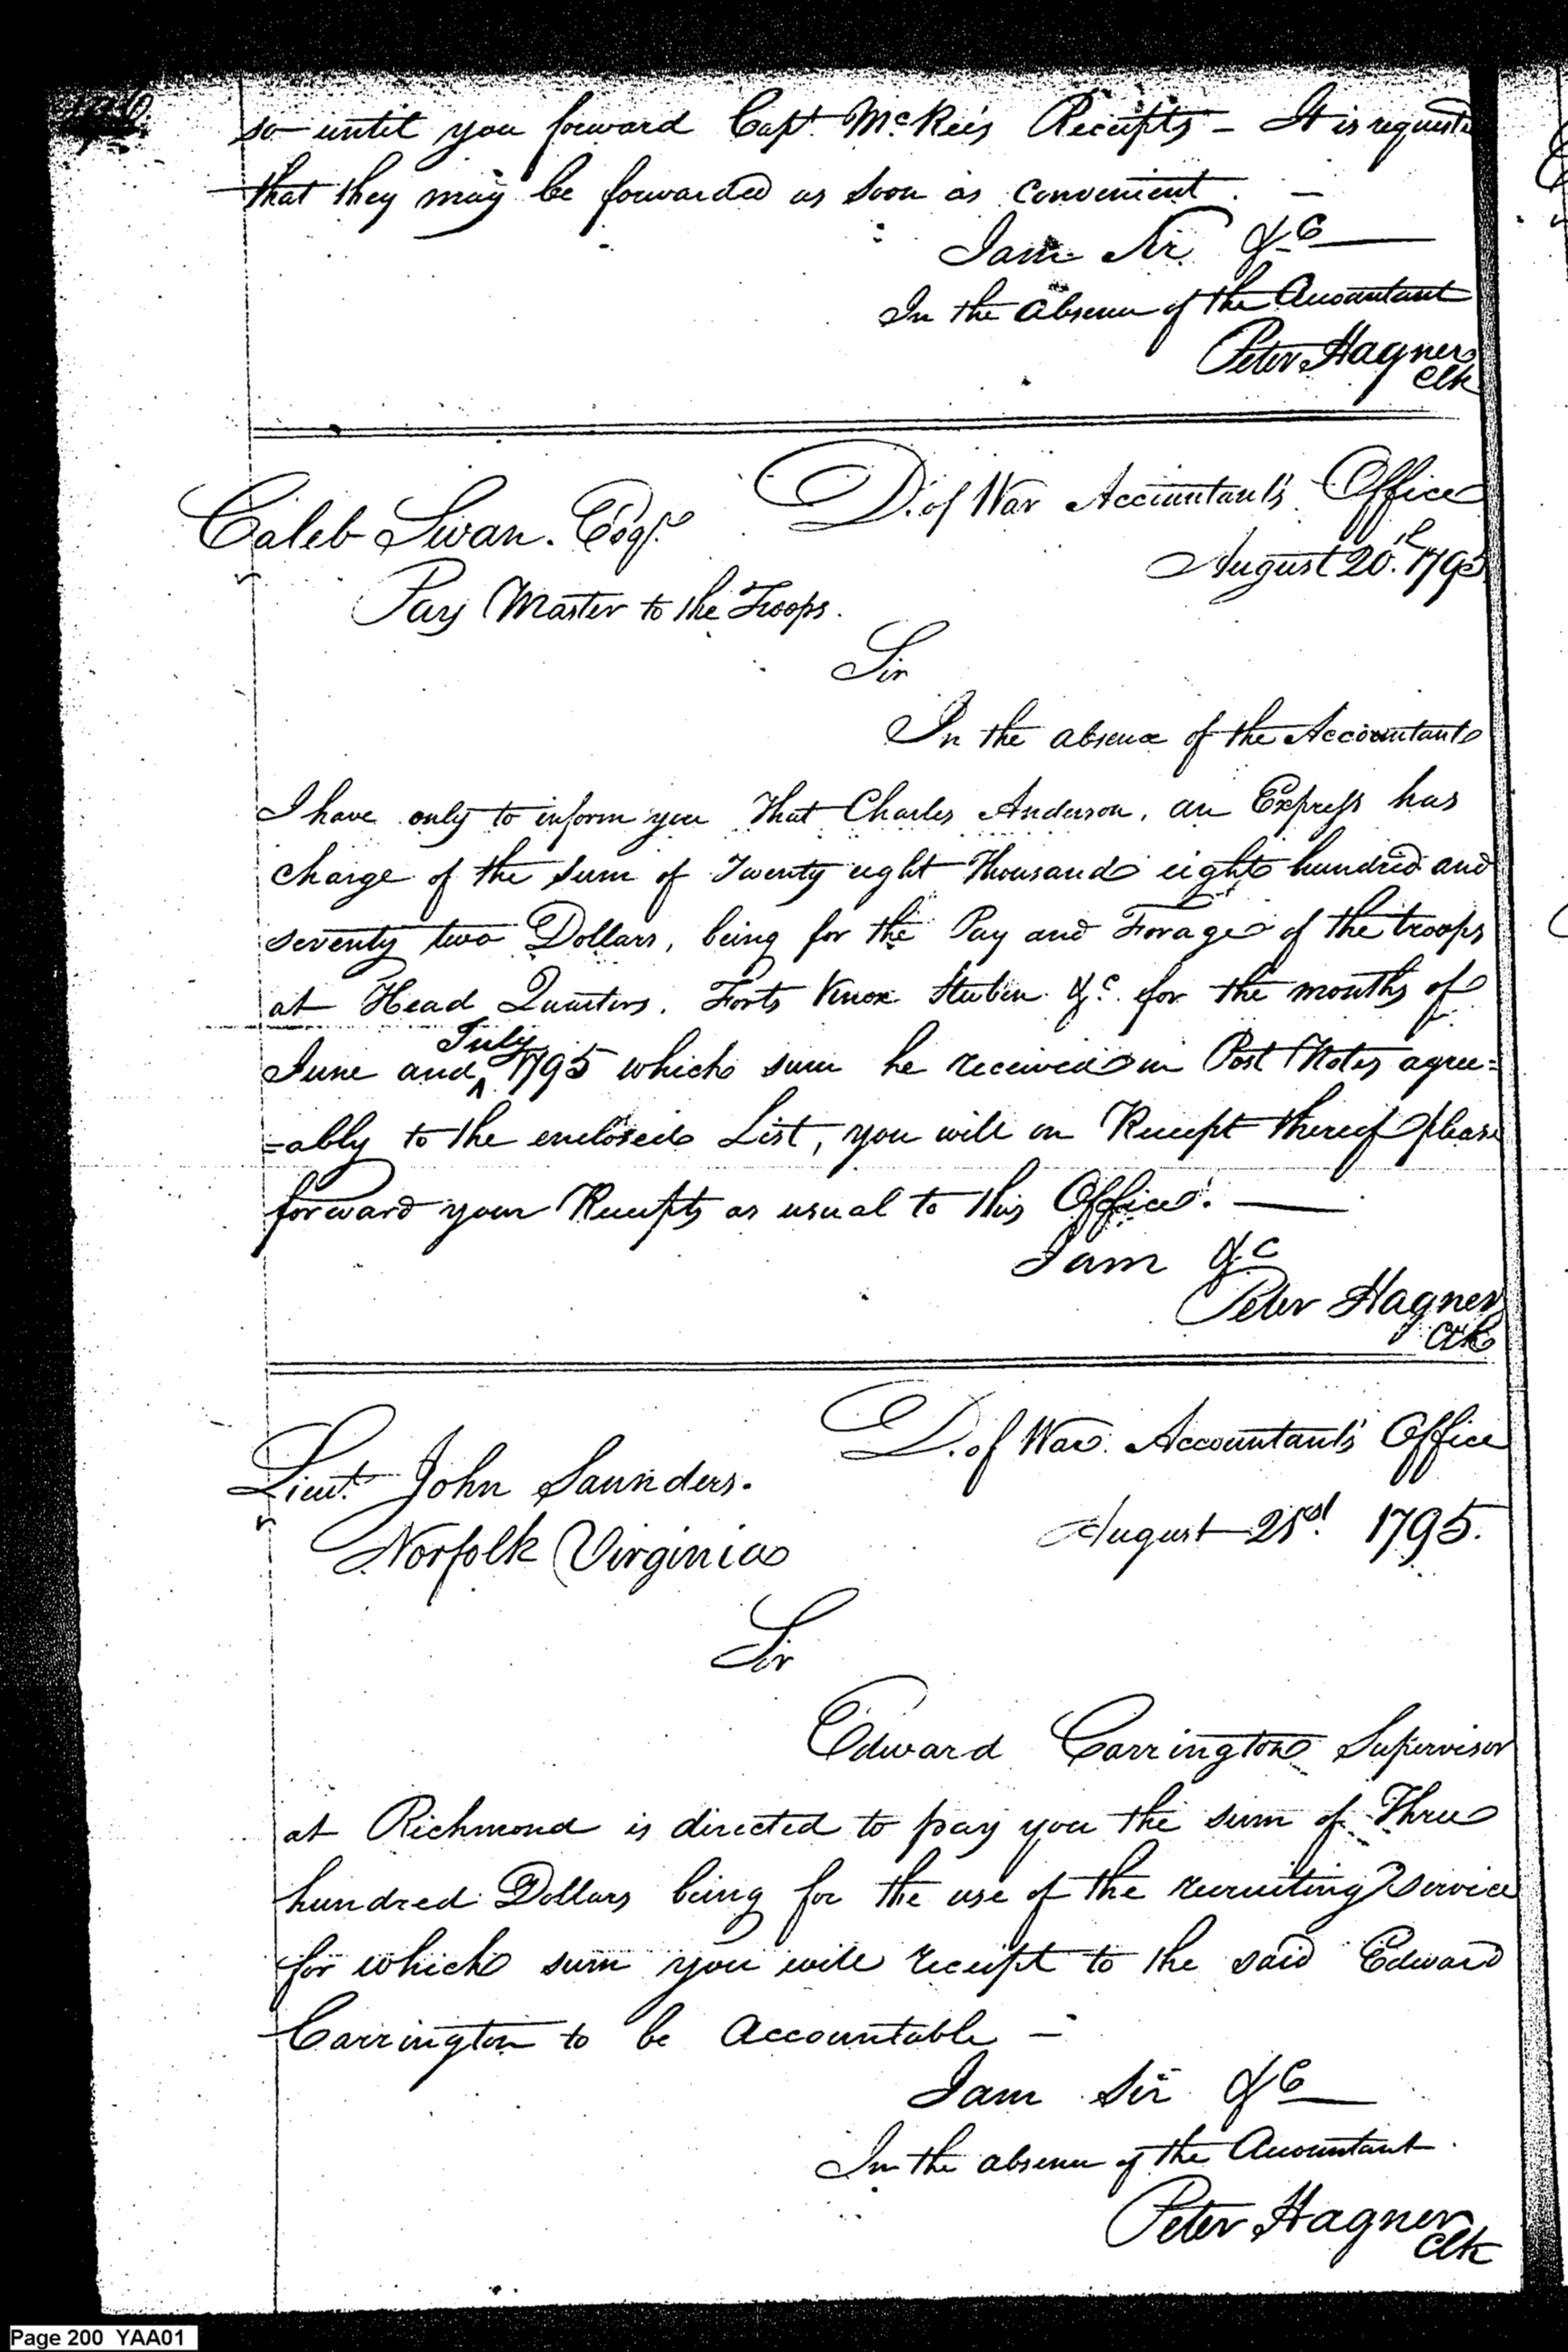 so until you forward Capt. McKee's Receipts — It is requested
that they may be forwarded as soon as convenient. —
I am Sir &C
In the absence of the Accountant
Peter Hagner
Clk
D. of War Accountant's Office
Caleb Swan. Esqr.
August 20th. 1795
Pay Master to the Troops.
Sir
In the absence of the Accountant
I have only to inform you That Charles Anderson, an Express has
charge of the sum of Twenty eight Thousand eight hundred and
seventy two Dollars, being for the Pay and Forage of the troops
at Head Quarters, Forts Knox Steuben &c. for the months of
June and July 1795 which sum he received in Post Notes agree=
=ably to the enclosed List, you will on Receipt thereof please
forward your Receipts as usual to this Office. —
I am &c
Peter Hagner
Clk
D. of War. Accountant's Office
Lieut. John Saunders.
August 25th 1795.
Norfolk Virginia
Sir
Edward Carrington Supervisor
at Richmond is directed to pay you the sum of Three
hundred Dollars being for the use of the recruiting Service
for which sum you will receipt to the said Edward
Carrington to be Accountable —
I am Sir &C
In the absence of the Accountant.
Peter Hagner
Clk
Page 200 YAA01